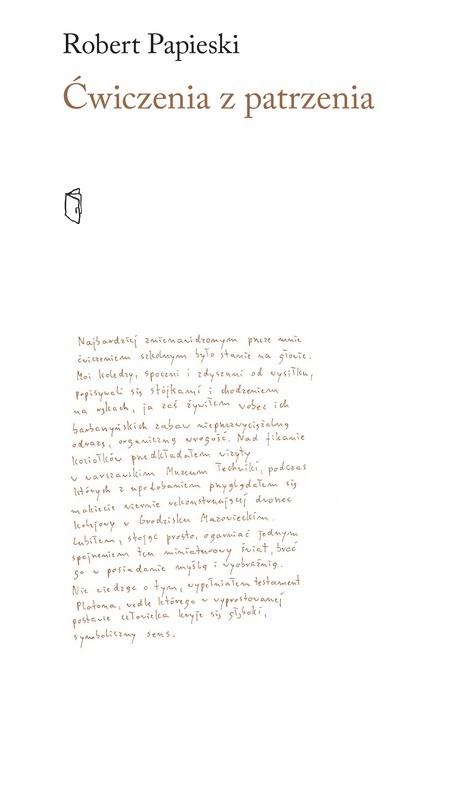 Robert Papieski
Ćwiczenia z patrzenia
Najbardziej znienawidzonym przez mnie
ćwiczeniem szkolnym było stanie na głowie.
Moi koledzy, spoceni i zdyszani od wysiłku,
popisywali się stójkami i chodzeniem
na rękach, ja zaś żywiłem wobec ich
barbarzyńskich zabaw nieprzezwyciężalną
odrazę, organiczną wrogość. Nad fikanie
koziołków przedkładałem wizyty
w warszawskim Muzeum Techniki, podczas
których z upodobaniem przyglądałem się
makiecie wiernie rekonstruującej dworzec
kolejowy w Grodzisku Mazowieckim.
Lubiłem, stojąc prosto, ogarniać jednym
spojrzeniem ten miniaturowy świat, brać
go w posiadanie myślą i wyobraźnią.
Nie wiedząc o tym, wypełniałem testament
Platona, wedle którego w wyprostowanej
postawie człowieka kryje się głęboki,
symboliczny sens.